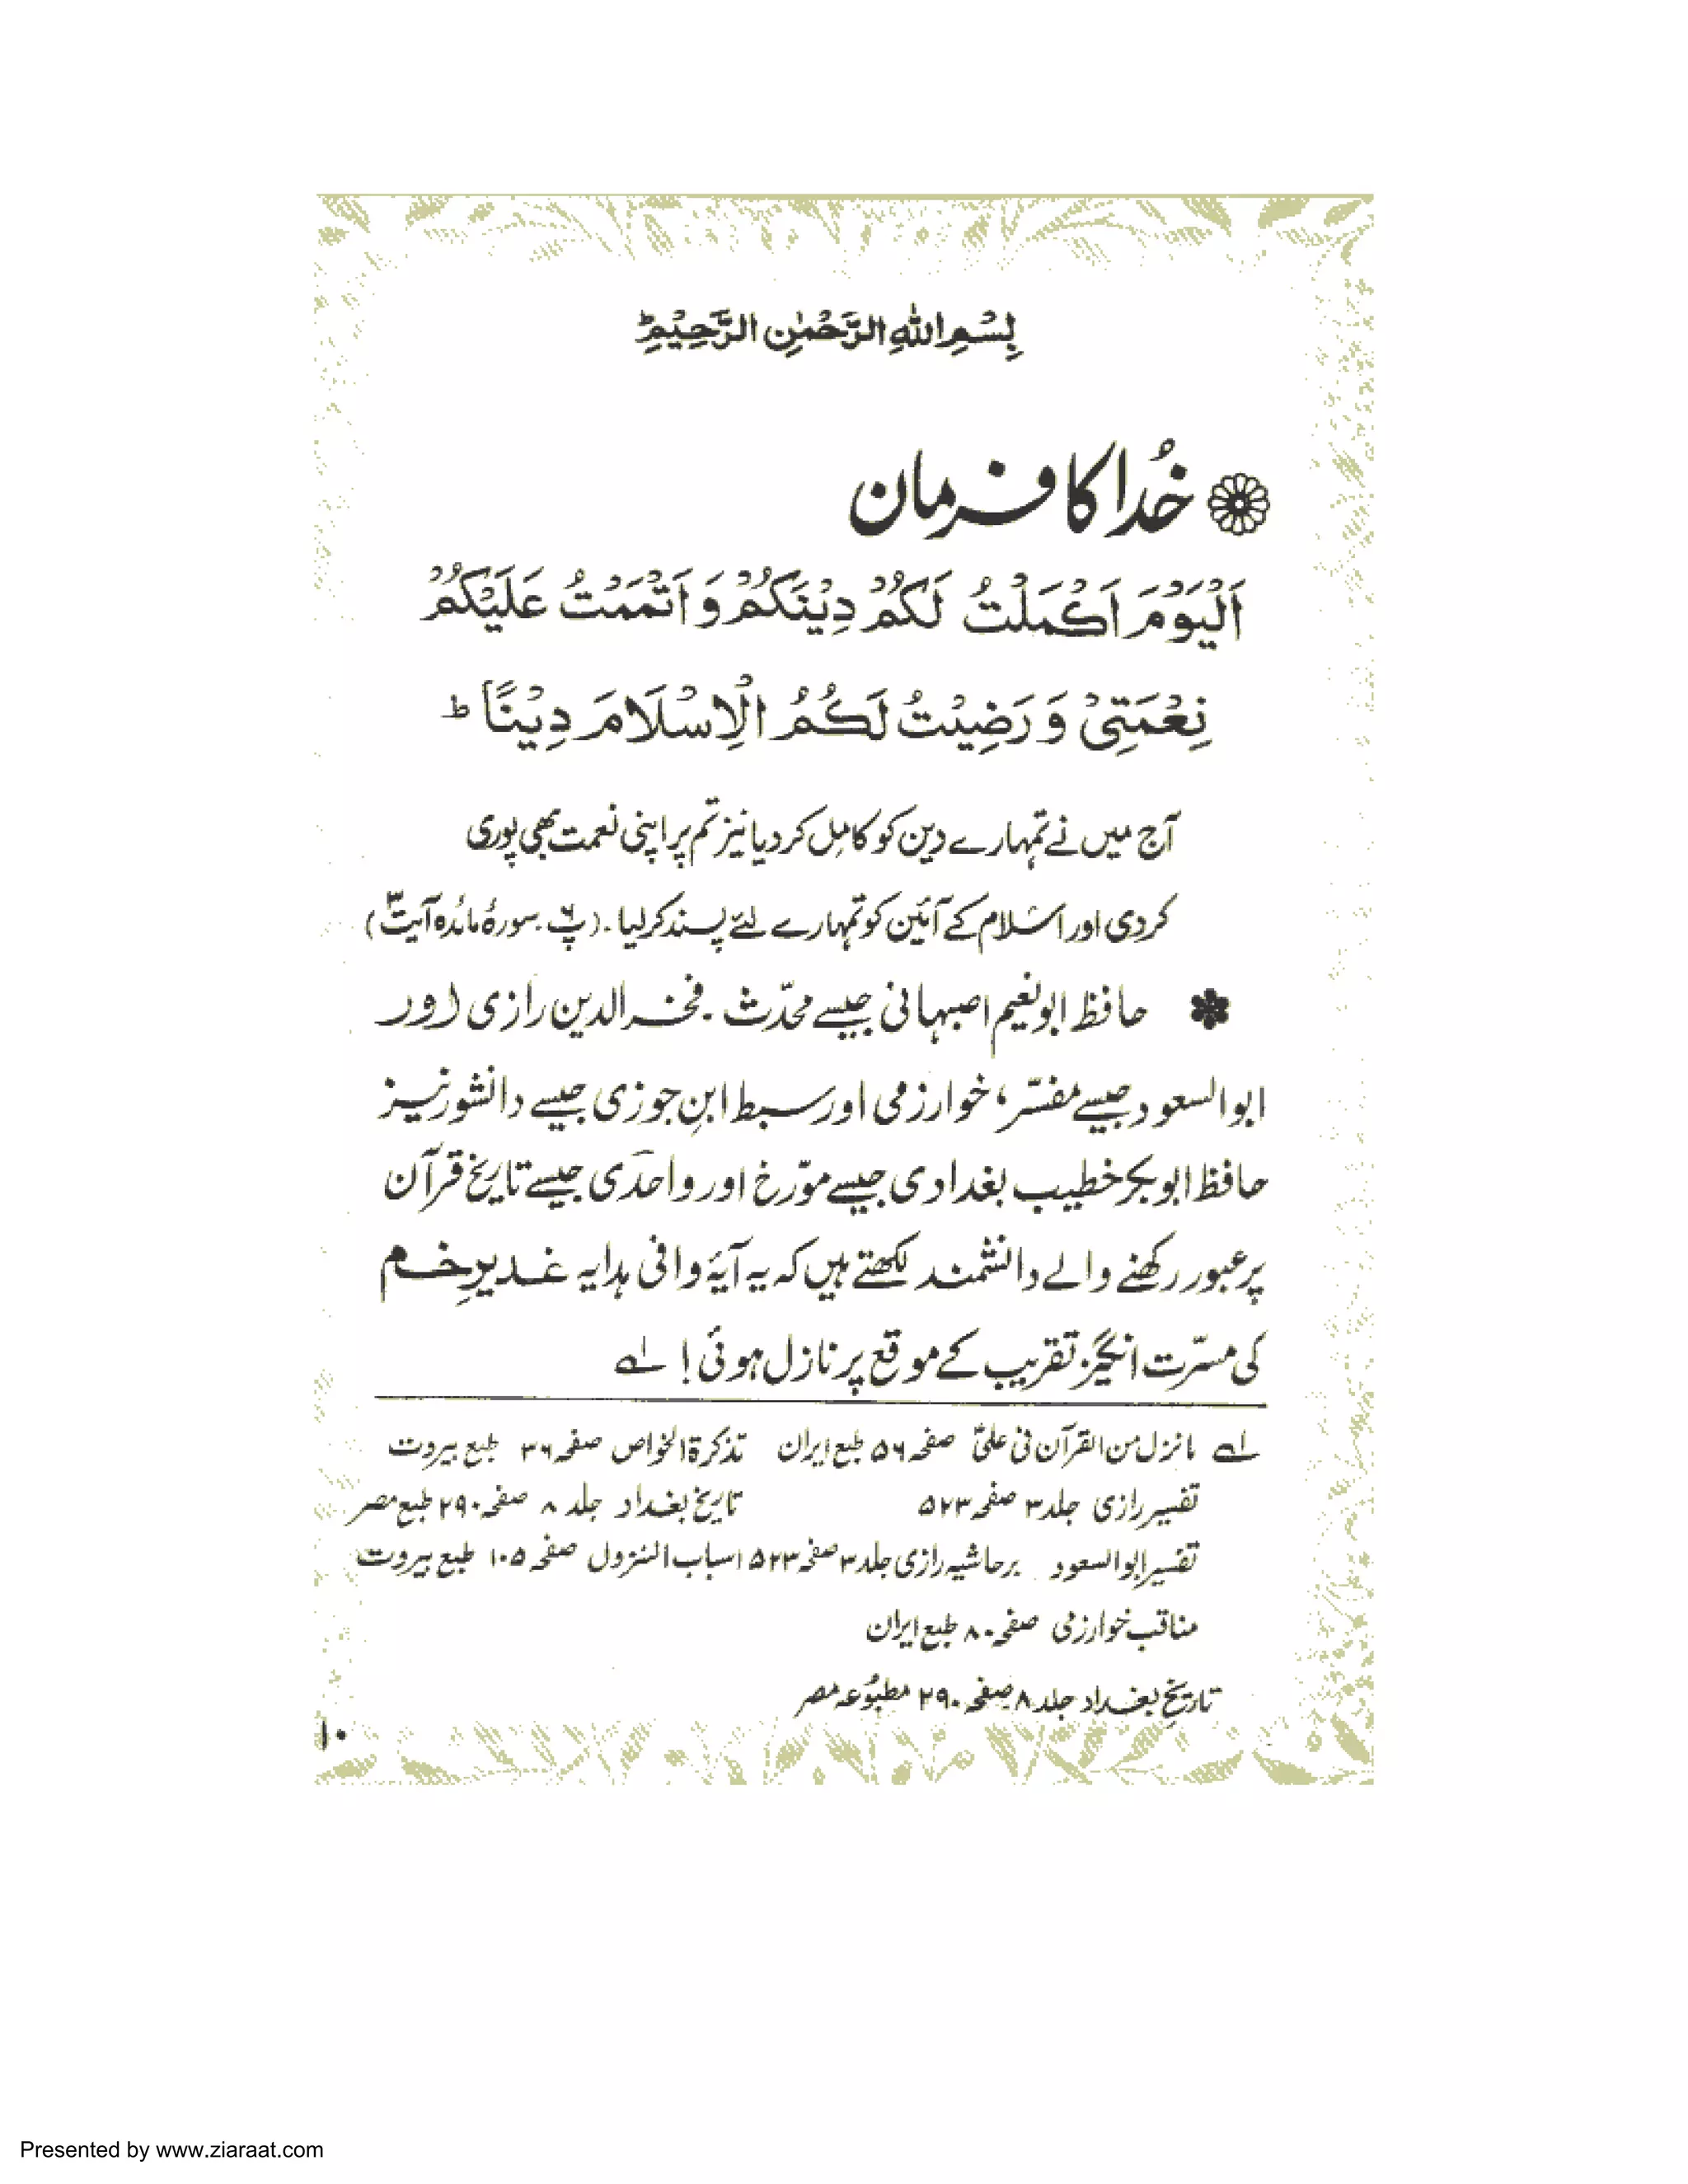 بِسْمِ اللهِ الرَّحْمٰنِ الرَّحِيْمِ ط
خُدا کا فرمان
اَلْيَوْمَ اَكْمَلْتُ لَكُمْ دِيْنَكُمْ وَ اَتْمَمْتُ عَلَيْكُمْ
نِعْمَتِىْ وَ رَضِيْتُ لَكُمُ الْاِسْلَامَ دِيْنًا ط
آج میں نے تمہارے دین کو کامِل کر دیا نیز تم پر اپنی نعمت بھی پوری
کر دی اور اسلام کے آئین کو تمہارے لئے پسند کر لیا۔ (پ۶۔ سورۂ مائدہ آیت۳)
حافظ ابونعیم اصبہانی جیسے محدّث۔ فخر الدین رازی اور
ابوالسعود جیسے مفسّر، خوارزمی اور سبط ابنِ جوزی جیسے دانشور نیز
حافظ ابوبکر خطیب بغدادی جیسے مورّخ اور واحدی جیسے تاریخ قرآن
پر عبور رکھنے والے دانشمند لکھتے ہیں کہ یہ آیۂ وافی ہدایہ غدیرِ خم
کی مسرّت انگیز تقریب کے موقع پر نازل ہوئی! لے
لے مانزل من القرآن فی علیؑ صفحہ ۵۶ طبع ایران تذکرۃ الخواص صفحہ ۳۶ طبع بیروت
تفسیر رازی جلد ۳ صفحہ ۵۲۳ تاریخ بغداد جلد ۸ صفحہ ۲۹۰ طبع مصر
تفسیر ابوالسعود برحاشیہ رازی جلد ۳ صفحہ ۵۲۳ اسباب النزول صفحہ ۱۰۵ طبع بیروت
مناقب خوارزمی صفحہ ۸۰ طبع ایران
تاریخِ بغداد جلد ۸ صفحہ ۲۹۰ مطبُوعہ مصر
۱۰
Presented by www.ziaraat.com